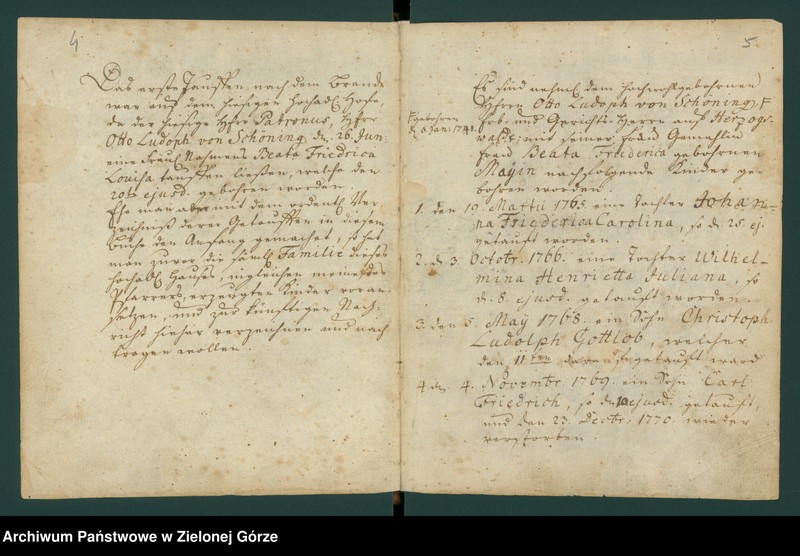 4
Das erste Tauffen, nach dem Brande
war auf dem hiesigen Hochadl. Hofe,
da der hiesige Herr Patronus, Herr
Otto Ludoph von Schöning, d. 26. Jun:
eine Fräul. Nahmens Beata Friedrica
Louisa tauffen ließen, welche den
20ten ejusd. gebohren worden.
Ehe man aber mit dem ordentl. Ver-
zeichniß derer Getaufften in diesem
Buche den Anfang gemachet, so hat
man zuvor die sämtl. Familie dieses
Hochadl. Hauses, ingleichen meines des
Pfarrers, erzeugten Kinder voran-
setzen, und zur künftigen Nach-
richt hieher verzeichnen und nach-
tragen wollen.
5
Es sind nehml. dem Hochwohlgebohrnen
Herrn Otto Ludoph von Schöning,
Erb- und Gerichts-Herrn auf Herzogs-
walde; mit seiner Frau Gemahlin
Frau Beata Friederica gebohrnen
Mayin nachfolgende Kinder ge-
bohren worden.
gebohren
d. 6 Jan: 1741.
1. den 19. Martii 1765. eine Tochter Johan-
na Friederica Carolina, so d. 25. ej.
getauft worden.
2. d. 3. Octobr. 1766. eine Tochter Wilhel-
mina Henrietta Juliana, so
d. 8 ejusd. getauft worden.
3. den 5. May 1768. ein Sohn Christoph
Ludolph Gottlob, welcher
den 11ten darauf getauft ward
4. d. 4. Novembr. 1769. ein Sohn Carl
Friedrich, so d. 10 ejusd. getauft,
und den 23. Decbr. 1770. wieder
verstorben.
Archiwum Państwowe w Zielonej Górze